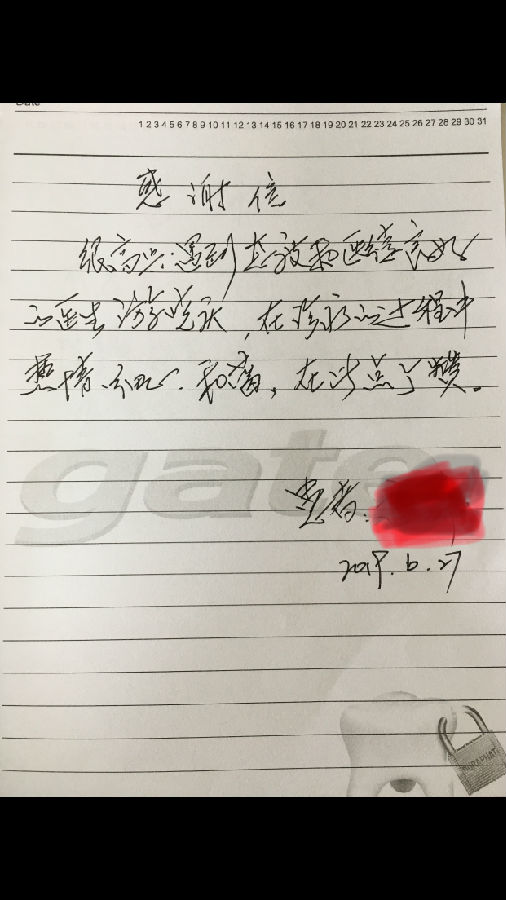 Date
1 2 3 4 5 6 7 8 9 10 11 12 13 14 15 16 17 18 19 20 21 22 23 24 25 26 27 28 29 30 31
感谢信
很高兴遇到
的医生, 在诊疗的过程中
热情、细心、和蔼, 在此点个赞。
gate
患者:
2019.6.27
DURAPHAT